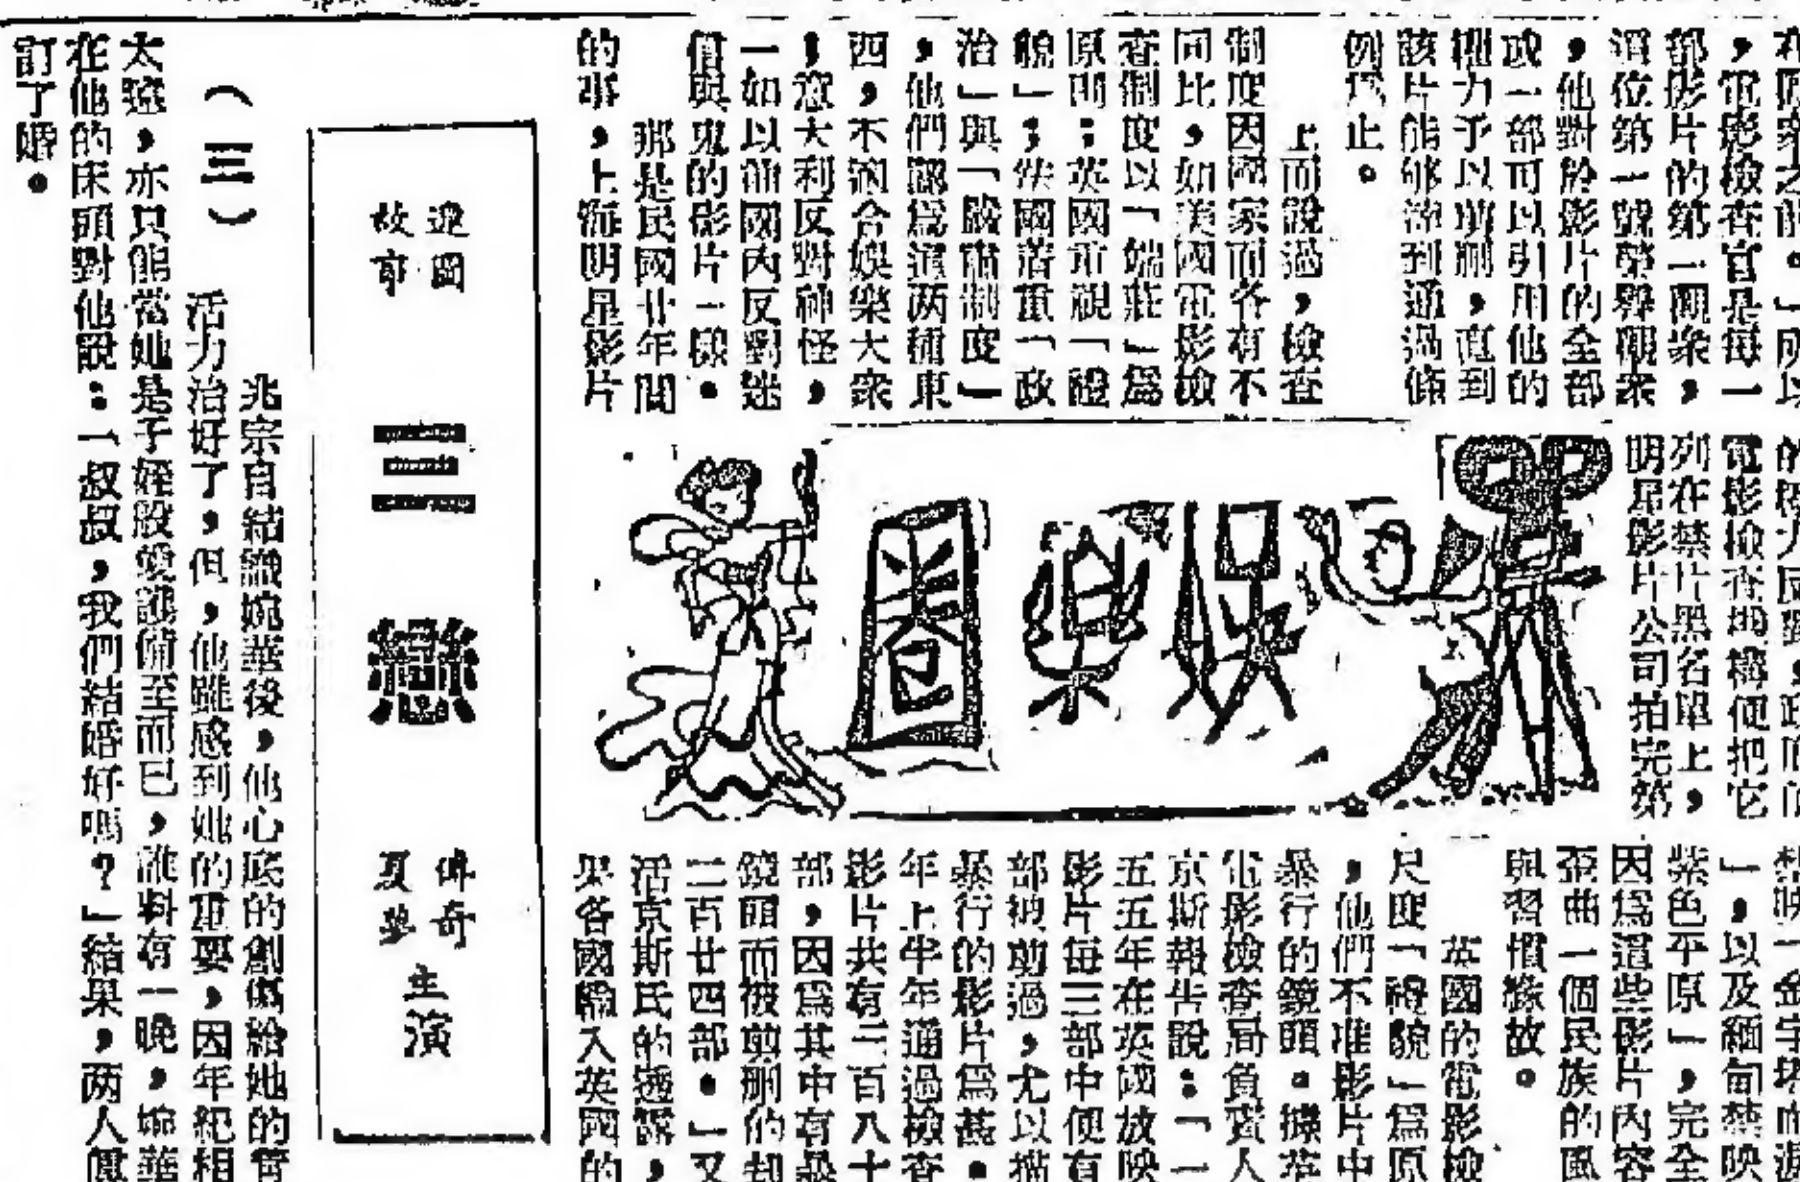 ，電影檢查官是每一
部影片的第一個觀衆，
這位第一號榮譽觀衆
，他對於影片的全部
或一部可以引用他的
權力予以剪刪，直到
該片能够達到通過條
例爲止。
上面說過，檢查
制度因國家而各有不
同比，如美國電影檢
查制度以「端莊」爲
原則；英國重視「禮
貌」；法國着重「政
治」與「嚴肅制度」
，他們認爲這兩種東
西，不適合娛樂大衆
，意大利反對神怪，
一如以前國內反對迷
信與鬼的影片一樣。
那是民國廿年間
的事，上海明星影片
電影檢查機構便把它
列在禁片黑名單上，
明星影片公司拍完第
娛樂圈
」，以及緬甸禁映
紫色平原」，完全
因爲這些影片內容
歪曲一個民族的風
與習慣緣故。
英國的電影檢
尺度「禮貌」爲原
，他們不准影片中
暴行的鏡頭。據
電影檢查局負責人
京斯報告說：「一
五五年在英國放映
影片每三部中便有
部被剪過，尤以描
暴行的影片爲甚。
年上半年通過檢查
影片共有二百八十
部，因爲其中有暴
鏡頭而被剪刪的却
二百廿四部。」又
活京斯氏的透露，
果各國輸入英國的
故事
三戀
傳奇
夏夢
主演
（三）
兆宗自結識婉華後，他心底的創傷給她的
活力治好了，但，他雖感到她的重要，因年紀相
太遠，亦只能當她是子姪般愛護備至而已，誰料有一晚，婉華
在他的床頭對他說：「叔叔，我們結婚好嗎？」結果，兩人便
訂了婚。